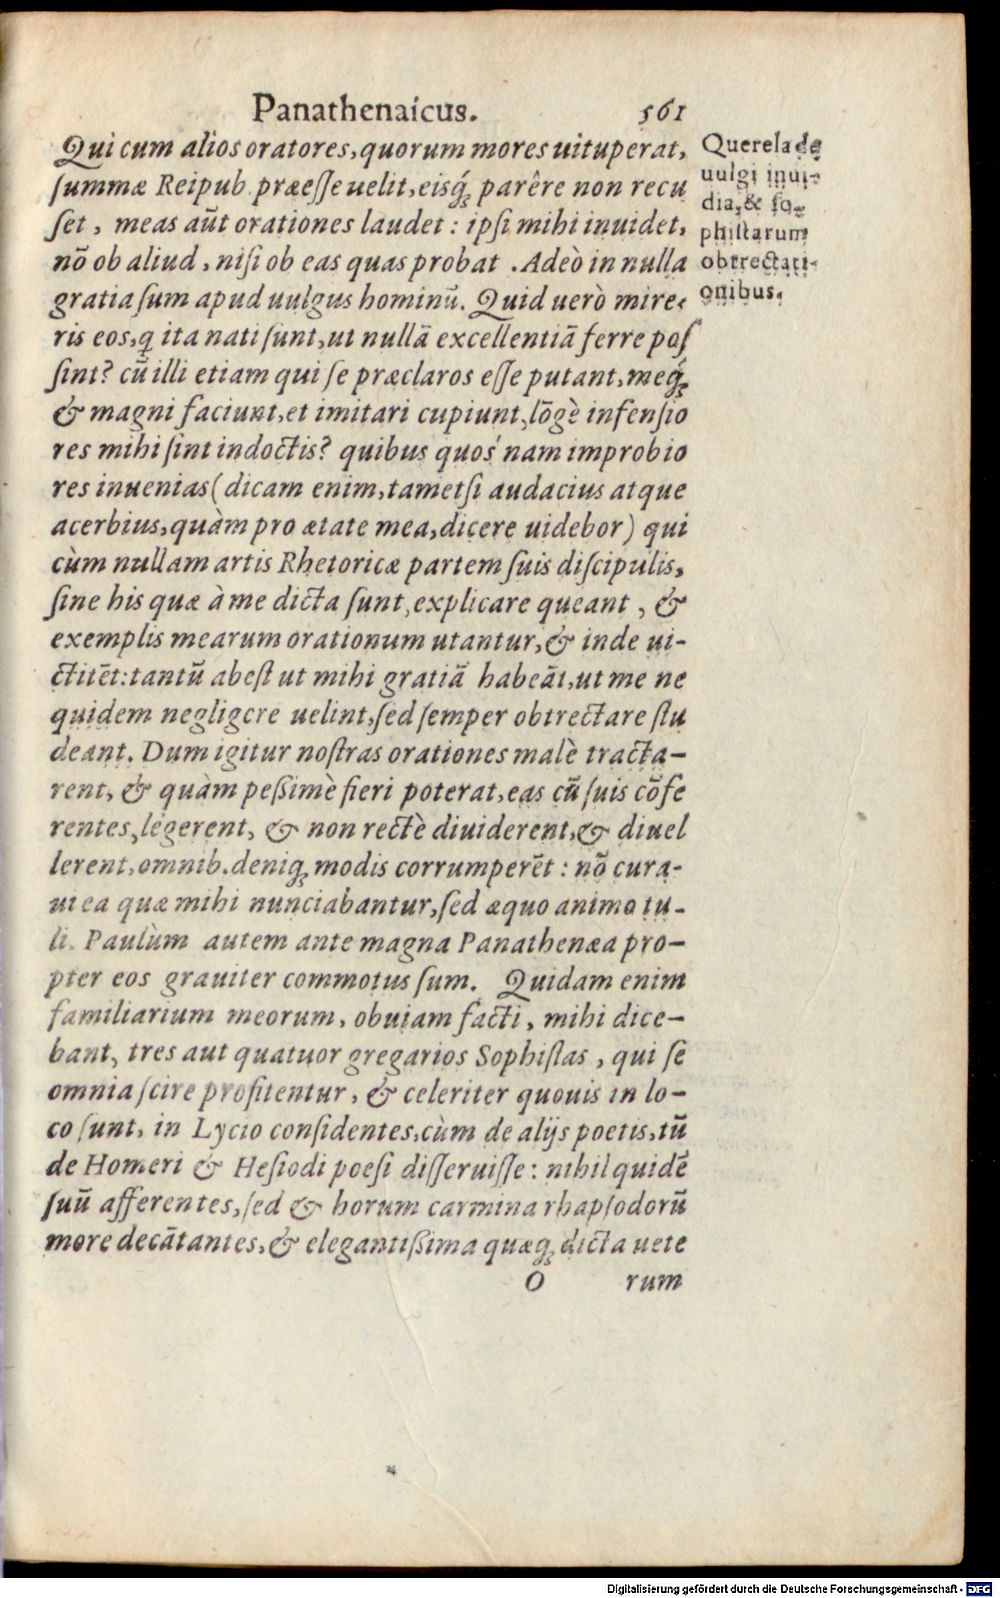 Panathenaicus. 561
Qui cum alios oratores, quorum mores uituperat,
ſummæ Reipub. præeſſe uelit, eisq́; parêre non recu
ſet, meas aũt orationes laudet: ipſi mihi inuidet,
nõ ob aliud, niſi ob eas quas probat. Adeò in nulla
gratia ſum apud uulgus hominũ. Quid uerò mire-
ris eos, q ita nati ſunt, ut nullã excellentiã ferre poſ
ſint? cũ illi etiam qui ſe præclaros eſſe putant, meq́;
& magni faciunt, et imitari cupiunt, lõgè infenſio
res mihi ſint indoctis? quibus quos'nam improbio
res inuenias (dicam enim, tametſi audacius atque
acerbius, quàm pro ætate mea, dicere uidebor) qui
cùm nullam artis Rhetoricæ partem ſuis diſcipulis,
ſine his quæ à me dicta ſunt, explicare queant, &
exemplis mearum orationum utantur, & inde ui-
ctitẽt: tantũ abeſt ut mihi gratiã habeãt, ut me ne
quidem negligere uelint, ſed ſemper obtrectare ſtu
deant. Dum igitur noſtras orationes malè tracta-
rent, & quàm peßimè fieri poterat, eas cũ ſuis cõfe
rentes, legerent, & non rectè diuiderent, & diuel
lerent, omnib. deniq; modis corrumperẽt: nõ cura-
ui ea quæ mihi nunciabantur, ſed æquo animo tu-
li. Paulùm autem ante magna Panathenæa pro-
pter eos grauiter commotus ſum. Quidam enim
familiarium meorum, obuiam facti, mihi dice-
bant, tres aut quatuor gregarios Sophiſtas, qui ſe
omnia ſcire profitentur, & celeriter quouis in lo-
co ſunt, in Lycio conſidentes, cùm de alijs poetis, tũ
de Homeri & Heſiodi poeſi diſſeruiſſe: nihil quidẽ
ſuũ afferentes, ſed & horum carmina rhapſodorũ
more decãtantes, & elegantißima quæq; dicta uete
O rum
Querela de
uulgi inui-
dia, & ſo-
phiſtarum
obtrectati-
onibus.
Digitalisierung gefördert durch die Deutsche Forschungsgemeinschaft - DFG